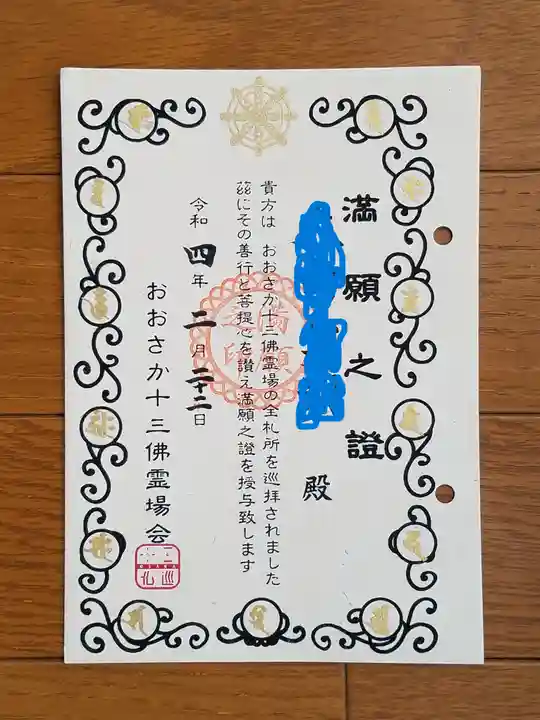 満願之證
殿
貴方は おおさか十三佛霊場の全札所を巡拝されました
茲にその善行と菩提心を讃え満願之證を授与致します
令和四年二月二十二日
おおさか十三佛霊場会
満願
之印